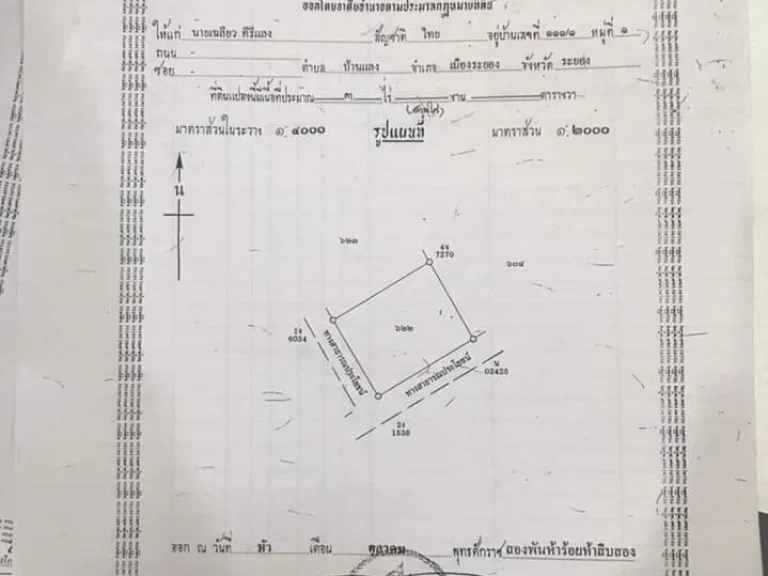 ออกโดยอาศัยอำนาจตามประมวลกฎหมายที่ดิน
ให้แก่ นายเฉลียว คีรีแลง สัญชาติ ไทย อยู่บ้านเลขที่ ๑๑๑/๑ หมู่ที่ ๑
ถนน -
ซอย - ตำบล บ้านแลง อำเภอ เมืองระยอง จังหวัด ระยอง
ที่ดินแปลงนี้มีเนื้อที่ประมาณ ๓ ไร่ งาน ตารางวา
(สามไร่)
มาตราส่วนในระวาง ๑:๔๐๐๐ รูปแผนที่ มาตราส่วน ๑:๒๐๐๐
น
๖๒๓
4จ
7270
๖๐๔
1จ
6034
๖๒๒
ทางสาธารณประโยชน์
ทางสาธารณประโยชน์
น
02425
2จ
1538
ออก ณ วันที่ ห้า เดือน ตุลาคม พุทธศักราช สองพันห้าร้อยห้าสิบสอง